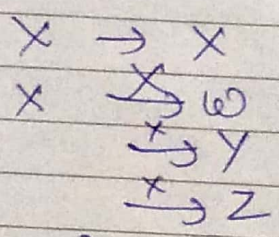 X → X
X ↛ ω
↛ Y
↛ Z